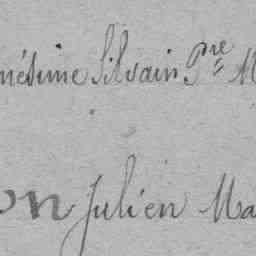 nésime Silvain Pre M
on Julien Ma